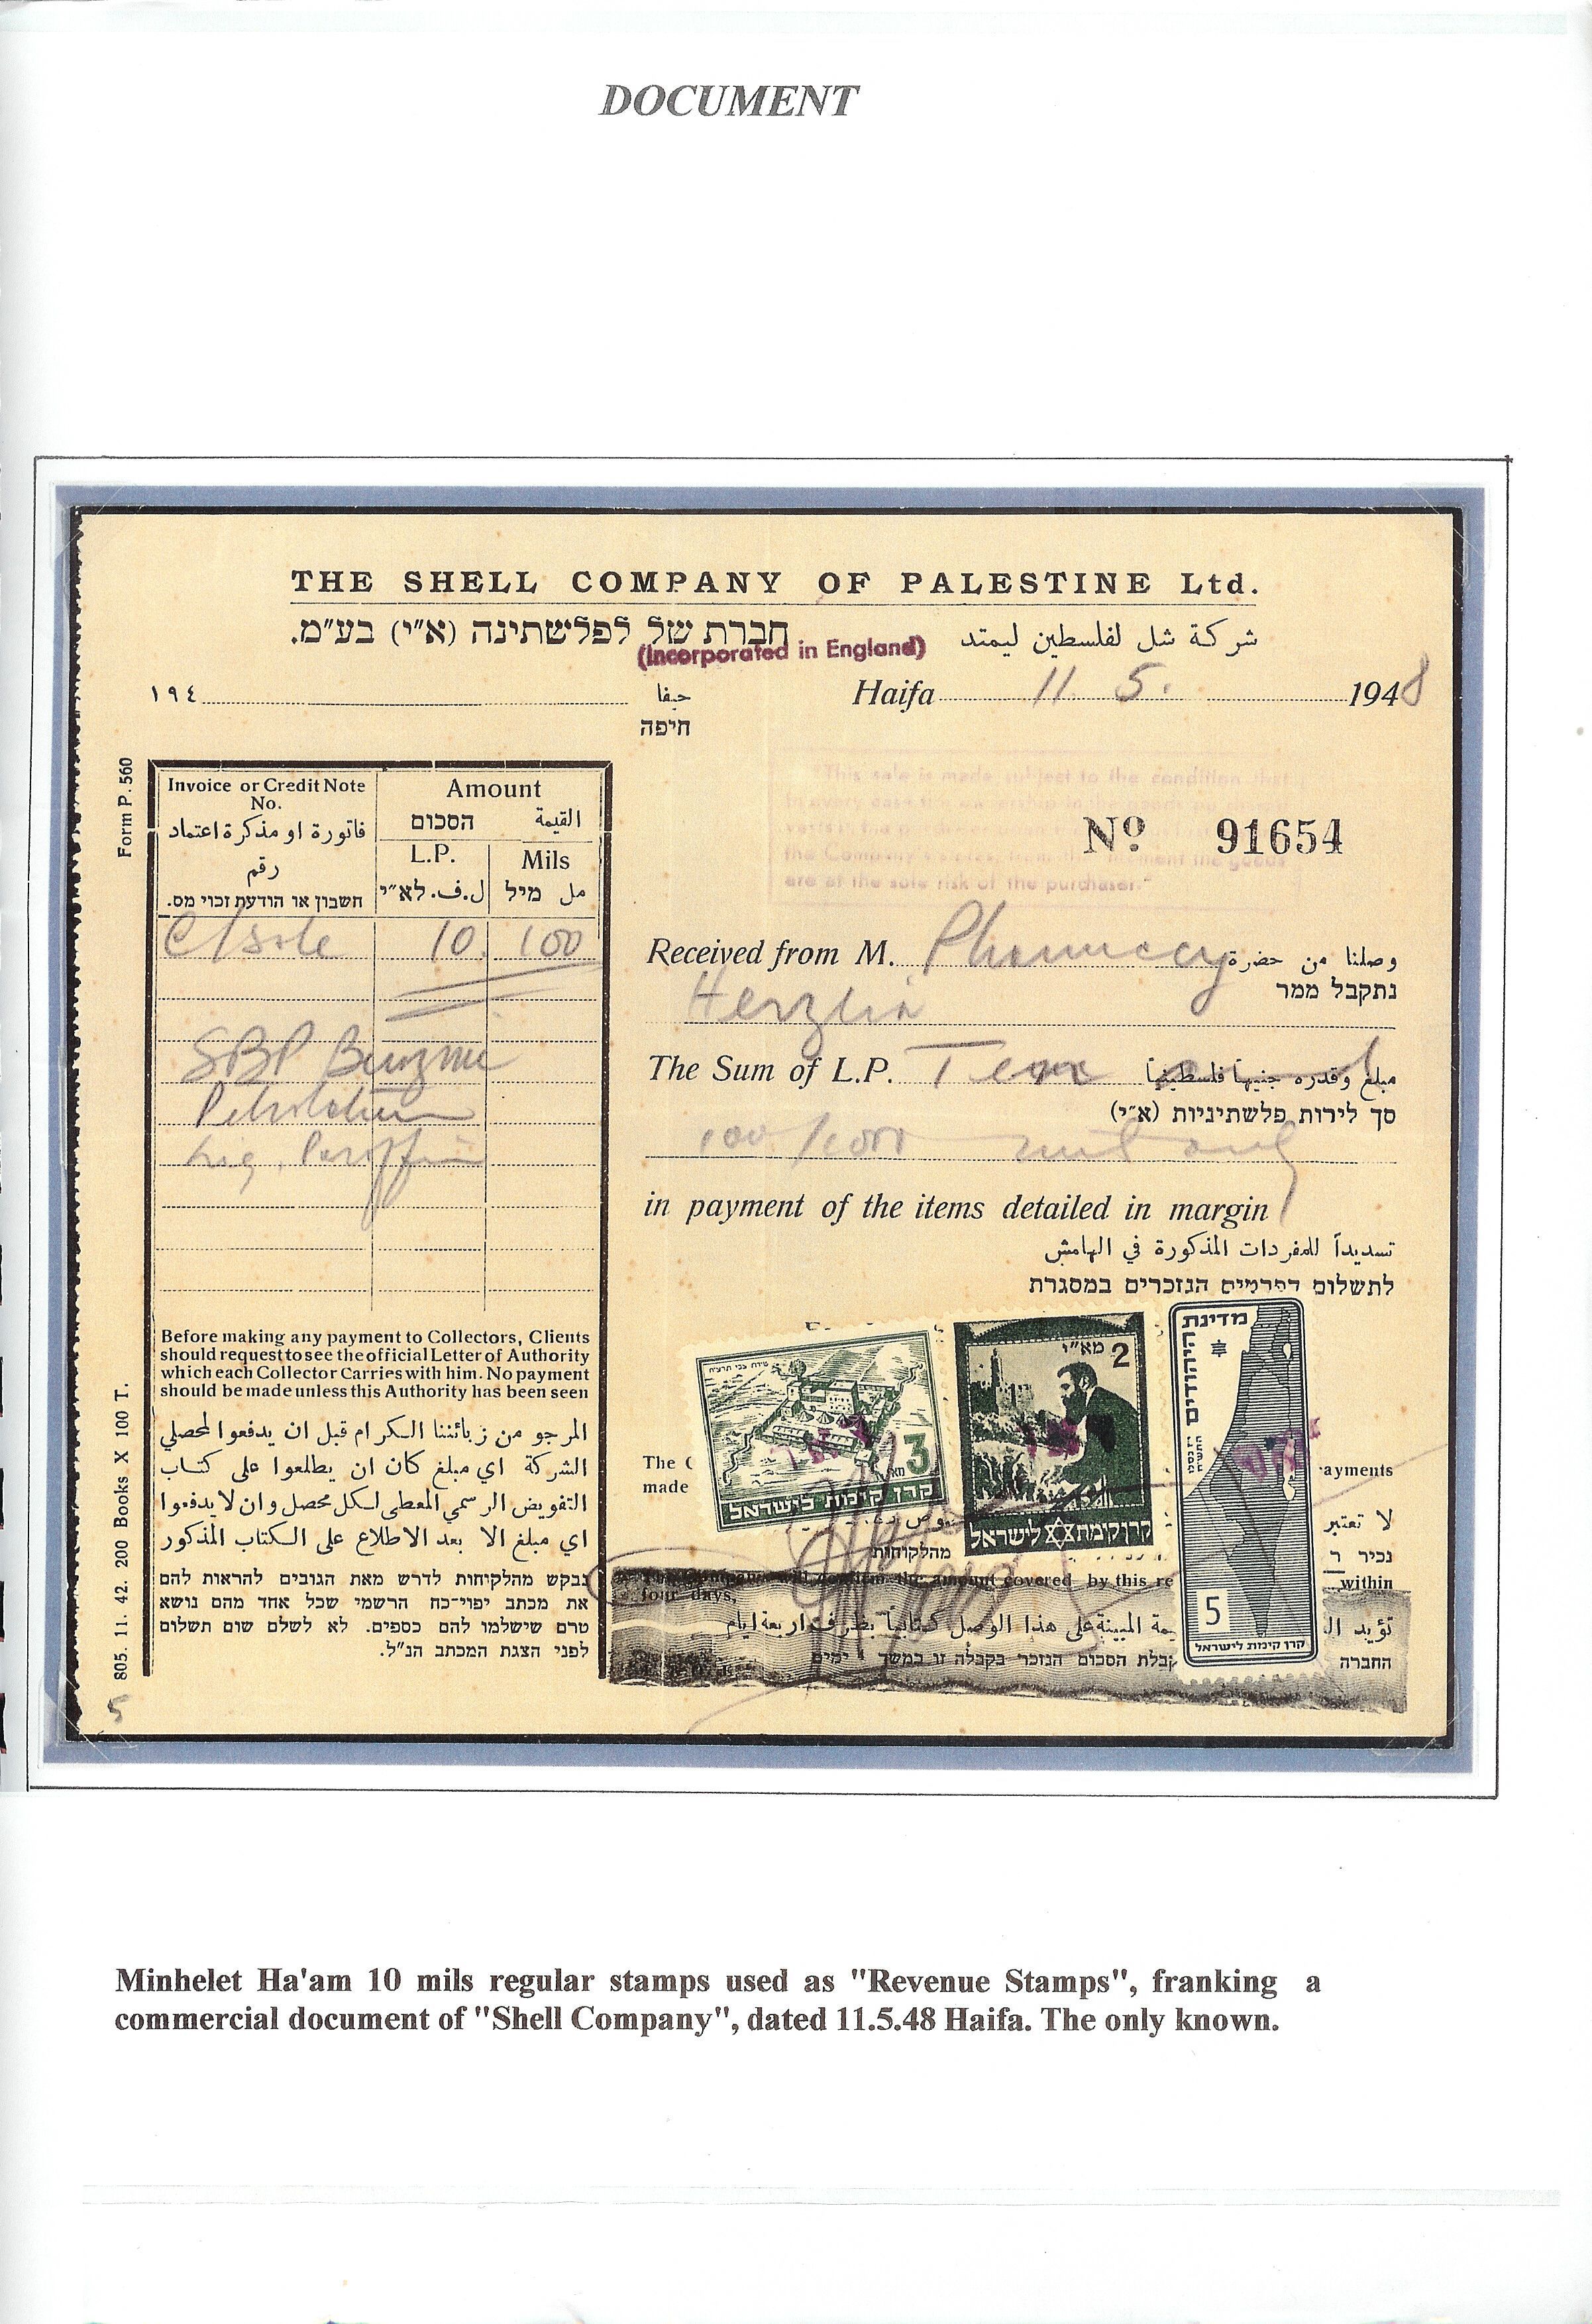 DOCUMENT
THE SHELL COMPANY OF PALESTINE Ltd.
חברת של לפלישתינה (א״י) בע״מ.
شركة شل لفلسطين ليمتد
(Incorporated in England)
١٩٤
حيفا
Haifa 11. 5. 1948
חיפה
Form P. 560
Invoice or Credit Note
No.
فاتورة او مذكرة اعتماد
رقم
חשבון או הודעת זכוי מס.
Amount
הסכום القيمة
L.P.
ל.פ. לא״י
Mils
מיל مل
10. 100
SBP
This sale is made subject to the condition that
the Company's
are at the sole risk of the purchaser."
Nº 91654
Received from M. Pharmacy وصلنا من حضرة
נתקבל ממר
Herzlia
The Sum of L.P. Ten مبلغ وقدره جنيهاً فلسطينياً
סך לירות פלשתיניות (א״י)
100/1000
in payment of the items detailed in margin
تسديداً للمفردات المذكورة في الهامش
לתשלום הפרטים הנזכרים במסגרת
Before making any payment to Collectors, Clients
should request to see the official Letter of Authority
which each Collector Carries with him. No payment
should be made unless this Authority has been seen
المرجو من زبائننا الكرام قبل ان يدفعوا لمحصلي
الشركة اي مبلغ كان ان يطلعوا على كتاب
التفويض الرسمي المعطى لكل محصل وان لا يدفعوا
اي مبلغ الا بعد الاطلاع على الكتاب المذكور
נבקש מהלקיחות לדרש מאת הגובים להראות להם
את מכתב יפוי־כח הרשמי שכל אחד מהם נושא
טרם שישלמו להם כספים. לא לשלם שום תשלום
לפני הצגת המכתב הנ״ל.
805. 11. 42. 200 Books X 100 T.
5
3
קרן קימת לישראל
2 מא״י
קרן קימת לישראל
מדינת היהודים
5
קרן קימת לישראל
The C
made
ayments
لا تعتبر
נכיר ר
מהלקוחות
will confirm the amount covered by this re within
four days.
تؤيد ال يمة المبينة على هذا الوصل كتابياً بظرف اربعة ايام
החברה קבלת הסכום הנזכר בקבלה זו במשך ימים
Minhelet Ha'am 10 mils regular stamps used as "Revenue Stamps", franking a
commercial document of "Shell Company", dated 11.5.48 Haifa. The only known.